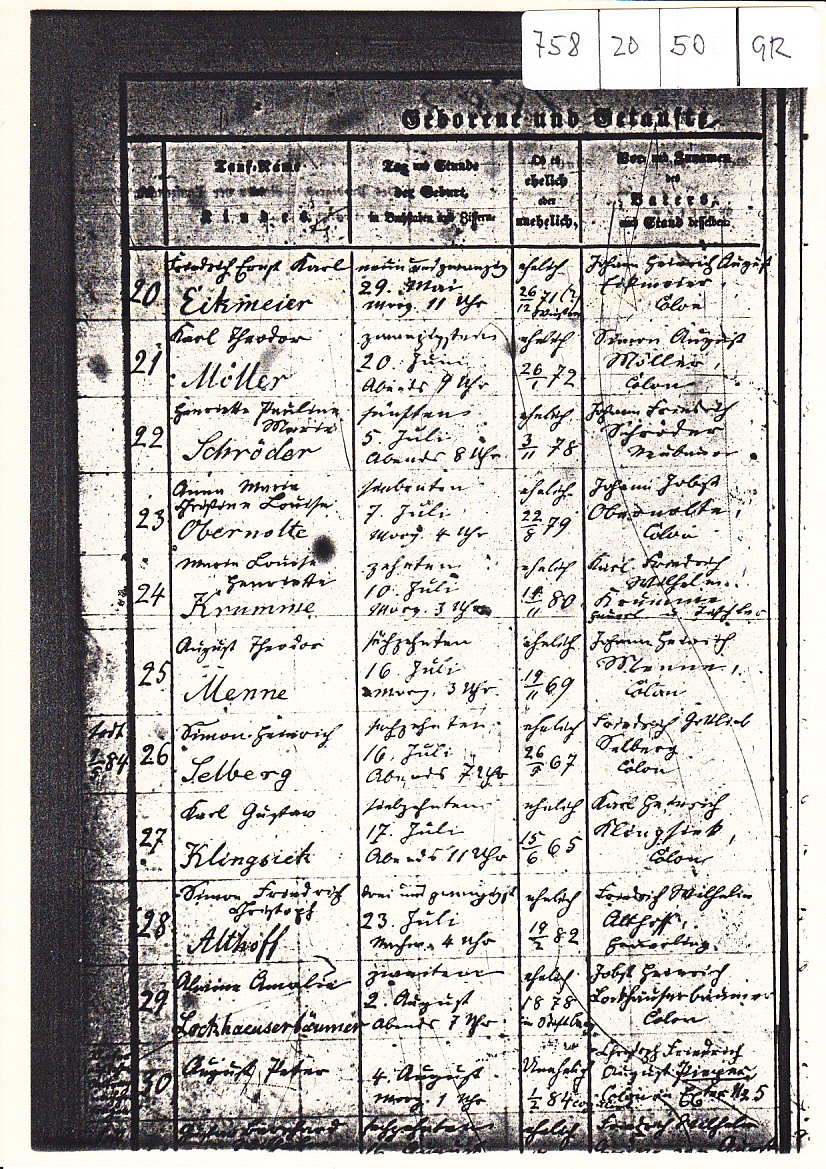 758 20 50 GR
Geborene und Getaufte
Tauf-Name
Kindes.
Tag und Stunde
der Geburt,
in Buchstaben und Ziffern.
Ob es
ehelich
oder
unehelich.
Vor- und Zunamen
des
Vaters,
und Stand desselben.
20
Friedrich Ernst Karl
Eikmeier
neunundzwanzig
29. Mai
Morg. 11 Uhr
ehelich
26/12 71 (?)
Johann Heinrich August
Eikmeier,
Colon
21
Karl Theodor
Möller
zwanzigsten
20. Juni
Abends 9 Uhr
ehelich
26/1 72
Simon August
Möller,
Colon
22
Henriette Pauline
Marie
Schröder
fünften
5 Juli
Abends 8 Uhr
ehelich
3/11 78
Johann Friedrich
Schröder
23
Anna Marie
Christine Louise
Obernolte
siebenten
7 Juli
Morg. 4 Uhr
ehelich
22/8 79
Johann Jobst
Obernolte,
Colon
24
Marie Louise
Henriette
Krumme
zehnten
10. Juli
Morg. 3 Uhr
ehelich
14/11 80
Karl Friedrich
Wilhelm
Krumme
25
August Theodor
Menne
16 Juli
Morg. 3 Uhr
ehelich
19/11 69
Johann Heinrich
Menne,
Colon
todt
84
26
Simon Heinrich
Selberg
sechzehnten
16. Juli
Abends 7 Uhr
ehelich
26/9 67
Friedrich Gottlieb
Selberg
Colon
27
Karl Gustav
Klingsiek
siebzehnten
17. Juli
Abends 11 Uhr
ehelich
15/6 65
Karl Heinrich
Klingsiek,
Colon
28
Simon Friedrich
Christoph
Althoff
drei und zwanzigst
23. Juli
Nachm. 4 Uhr
ehelich
19/2 82
Friedrich Wilhelm
Althoff,
Heuerling
29
Alwine Amalie
Lockhaeuserbäumer
zweiten
2. August
Abends 7 Uhr
ehelich
1878
Jobst Heinrich
Lockhäuserbäumer
Colon
30
August Peter
4. August
Morg. 1 Uhr
Unehelich
1/2 84
Christoph Friedrich
August Pieper,
Colon
N 5
ehelich
Friedrich Wilhelm